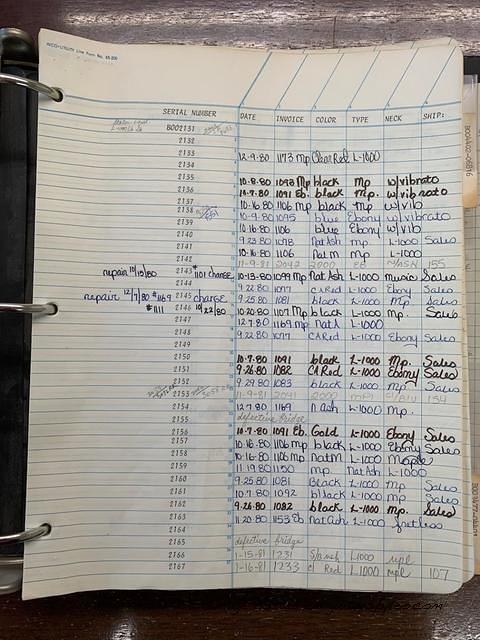 SERIAL NUMBER DATE INVOICE COLOR TYPE NECK SHIP:
B002131
2132
2133 12-9-80 1173 mp Clear Red L-1000
2134
2135 10-8-80 1093 mp black mp w/vibrato
2136 10-7-80 1091 Eb. black mp. w/vibrato
2137 10-16-80 1106 mp black mp w/vib
2138 10-9-80 1095 blue Ebony w/vibrato
2139 10-16-80 1106 blue Ebony w/vib
2140 9-23-80 1078 Nat Ash mp. L-1000 Sales
2141 10-16-80 1106 Nat m mp L-1000
2142 11-9-81 2042 2000 155
repair 10/10/80 2143 #1101 change 10-13-80 1099 mp Nat Ash L-1000 music Sales
9-22-80 1077 CA Red L-1000 Ebony Sales
repair 12/7/80 #1169 2145 charge 9-25-80 1081 black L-1000 mp Sales
#1111 2146 10/22/80 10-20-80 1107 mp black L-1000 mp. Sales
2147 12-7-80 1169 mp Nat A L-1000
2148 9-22-80 1077 CA Red L-1000 Ebony Sales
2149
2150 10-7-80 1091 black L-1000 mp. Sales
2151 9-26-80 1082 CA Red L-1000 Ebony Sales
2152 9-29-80 1083 black L-1000 mp Sales
2153 11-9-81 2041 2000 154
2154 12-7-80 1169 n ash L-1000 mp.
2155 defective fridge
2156 10-7-80 1091 Eb. Gold L-1000 Ebony Sales
2157 10-16-80 1106 mp black L-1000 Ebony Sales
2158 10-16-80 1106 mp natm L-1000 Maple
2159 11-19-80 1150 mp. Nat Ash L-1000
2160 9-25-80 1081 Black L-1000 mp Sales
2161 10-7-80 1092 black L-1000 mp Sales
2162 9-26-80 1082 black L-1000 mp. Sales
2163 11-20-80 1153 Eb Nat Ash L-1000 fretless
2165 defective fridge
2166 1-15-81 1231 L1000 mpl
2167 1-16-81 1233 cl Red L1000 mpl 107